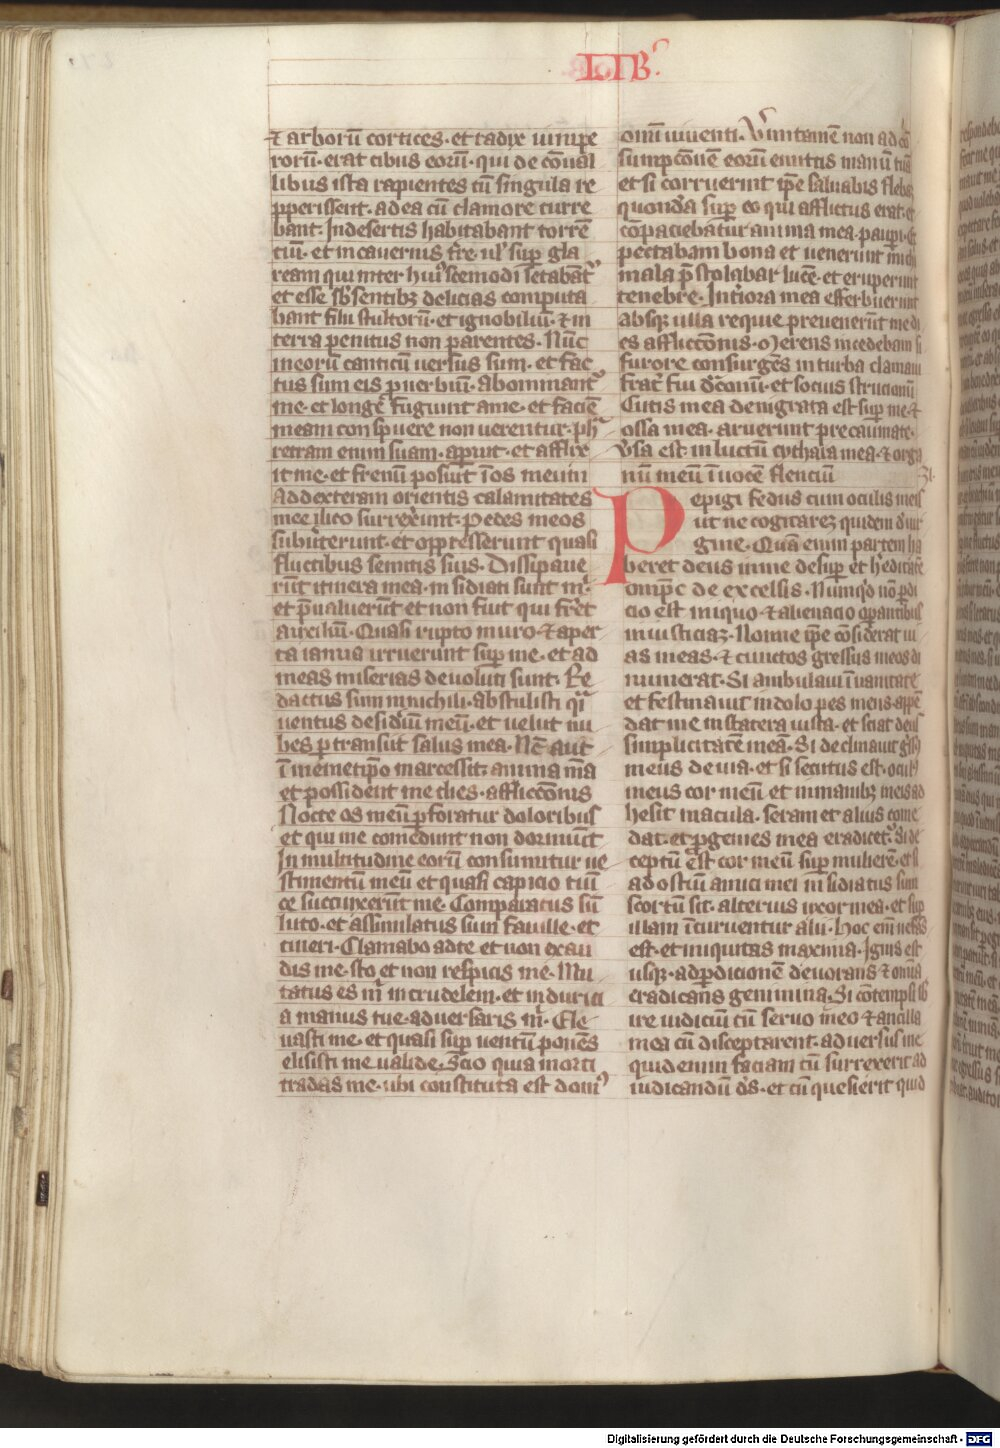 LIBꝰ
⁊ arborū cortices · et radix iunipe
rorū · erat cibus eorū · qui de cōual
libus ista rapientes cū singula re
pperissent · ad ea cū clamore curre
bant · In desertis habitabant torrē
ciū · et in cauernis t̄re · ul̓ sup̱ gla
ream qui inter hui᷒scemodi letabāt᷑
et esse sb̓ sentibꝫ delicias computa
bant filii stultorū · et ignobiliū · ⁊ in
terra penitus non parentes · Nūc
in eorū canticū uersus sum · et fac
tus sum eis ꝓuerbiū · Abominant᷑
me · et longe fugiunt a me · et faciē
meam conspuere non uerentur · ph᷑
retram enim suam · aperuit · et afflix
it me · et frenū posuit ī os meum
Ad dexteram orientis calamitates
mee ilico surrexerunt · pedes meos
subuerterunt · et oppresserunt quasi
fluctibus semitis suis · Dissipaue
rūt itinera mea · insidiati sunt m̓ ·
et p̄ualuerūt et non fuit qui fr̓et
auxiliū · Quasi rupto muro · ⁊ aper
ta ianua irruerunt sup̱ me · et ad
meas miserias deuoluti sunt · Re
dactus sum in nichili · abstulisti q̓i
uentus desideriū meū · et uelut nu
bes ꝑtransiit salus mea · Nc̄ aut̄
ī memetip̄o marcessit anima m̄a
et possident me dies · afflicc̄onis
Nocte os meū ꝑforatur doloribus
et qui me comedunt non dormiūt
In multitudine eorū consumitur ue
stimentū meū et quasi capicio tuni
ce succinxerūt me · Comparatus sū
luto · et assimulatus sum fauille · et
cineri · Clamabo ad te et non exau
dis me · sto et non respicis me · Mu
tatus es m̓ in crudelem · et in duricia
a manus tue aduersaris m̓ · Ele
uasti me · et quasi sup̱ uentū ponēs
elisisti me ualide · Scio quia morti
tradas me · ubi constituta est dom᷒
omī uiuenti · Ve᷑rūtamē non ad cō
sumpc̄onē eorū emittis manū tuā
et si corruerint ip̄e saluabis flebā
quondā sup̱ eo qui afflictus erat · et
cōpaciebātur anima mea · pauꝑi · ex
pectabam bona et uenerunt michi
mala p̄stolabar lucē · et eruperunt
tenebre · Int̓iora mea efferbuerunt
absqꝫ ulla requie preuenerūt me di
es afflicc̄onis · Merens incedebam si
furore consurgēs in turba clamaui
frat̓ fui dᷓconū · et socius strucionū
Cutis mea denigrata est sup̱ me · ⁊
ossa mea · aruerunt pre caumate ·
V᷑sa est in luctū cythara mea · ⁊ orga
nū meū ī uocē flenciū
31
Pepigi fedus cum oculis meis
ut ne cogitarē quidem d̓ uir
gine · Quā enim partem ha
beret deus in me desup̱ et h̓editatē
omp̄c de excelsis · Nūmqᷤd nō ꝑdi
cio est iniquo · ⁊ alienacio oꝑantibus
iniusticiā · Nonne ip̄e cōsiderat ui
as meas · ⁊ cunctos gressus meos di
numerat · Si ambulaui ī uanitate
et festinauit in dolo pes meus · appē
dat me in statera iusta · et sciat deus
simplicitatē meā · Si declinauit g̓ss᷒
meus de uia · et si secutus est · ocul᷒
meus cor meū et in manibꝫ meis ad
hesit macula · seram et alius come
dat · et ꝓgenies mea eradicet᷑ · Si de
ceptū est cor meū sup̱ mulierē · et si
ad ostiū amici mei insidiatus sum
scortū sit · alterius uxor mea · et sup̱
illam īcuruentur alii · Hoc em̄ nephas
est · et iniquitas maxima · Ignis est
usqꝫ · ad ꝑdicionē deuorans · ⁊ omnia
eradicans genimina · Si cōtempsi sb̓
ire iudiciū cū seruo meo · ⁊ ancilla
mea cū disceptarent · aduersus me
quid enim faciam cū surrexerit ad
iudicandū d̄s · et cū quesierit quid
Digitalisierung gefördert durch die Deutsche Forschungsgemeinschaft - DFG